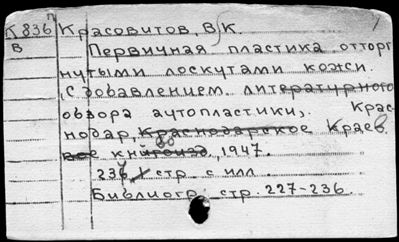 К 836 п Красовитов, В. К.
в Первичная пластика оторг
нутыми лоскутами кожи.
(С добавлением литературного
обзора аутопластики). Крас-
нодар, Краснодарское Краев.
кн 1947.
236 стр. с илл.
Библиогр: стр. 227-236.